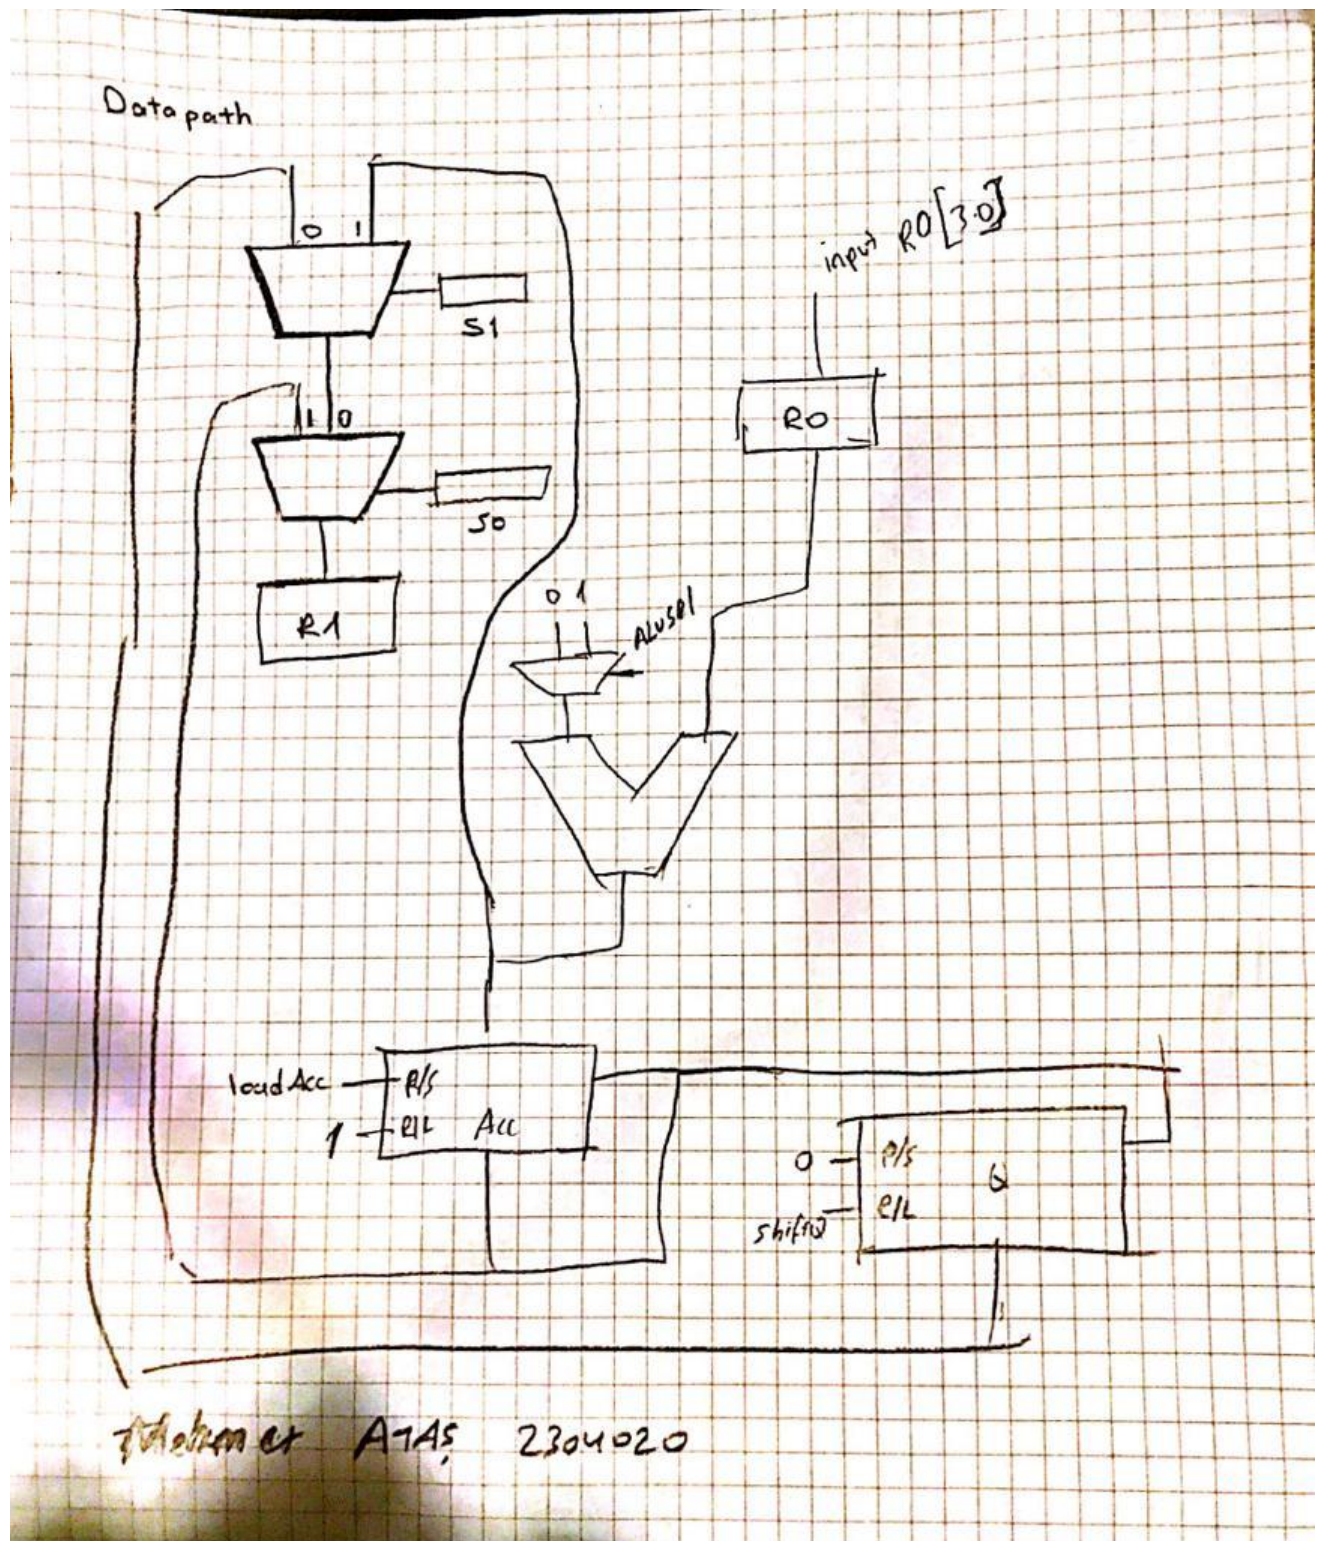 Datapath
0 1
S1
input R0[3:0]
1 0
R0
S0
0 1
ALUSel
R1
loadAcc P/S
1 R/L Acc
0 P/S
Q
shiftQ R/L
Mehmet ATAŞ 2304020